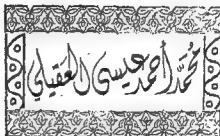 محمد أحمد عيسى العقيلي